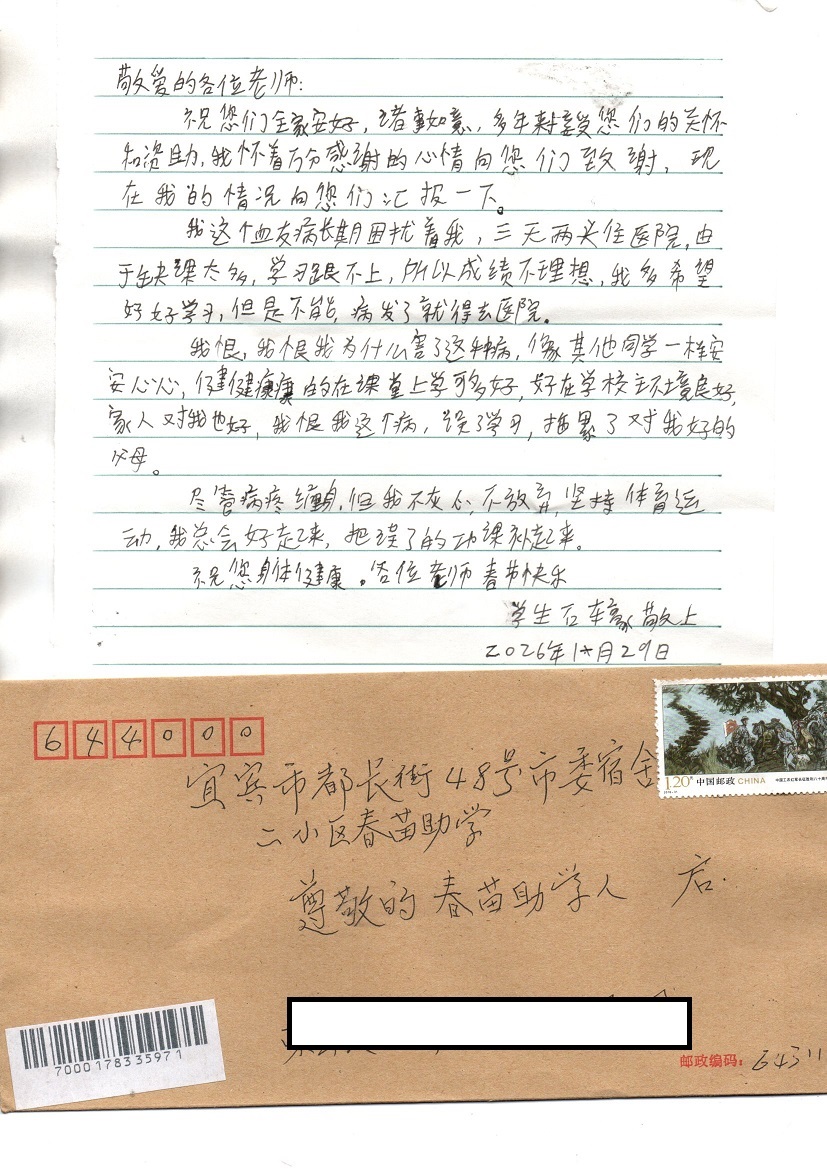 敬爱的各位老师:
祝您们全家安好,诸事如意,多年来接受您们的关怀
和资助,我怀着万分感谢的心情向您们致谢,现
在我的情况向您们汇报一下。
我这个血友病长期困扰着我,三天两头住医院,由
于缺课太多,学习跟不上,所以成绩不理想,我多希望
好好学习,但是不能,病发了就得去医院。
我恨,我恨我为什么害了这种病,像其他同学一样安
安心心,健健康康的在课堂上学可多好,好在学校环境良好,
家人对我也好,我恨我这个病,误了学习,拖累了对我好的
父母。
尽管病疼缠身,但我不灰心,不放弃,坚持体育运
动,我总会好起来,把误了的功课补起来。
祝您身体健康。各位老师春节快乐
学生石车豪敬上
2026年1月29日
644000
宜宾市都长街48号市委宿舍
二小区春苗助学
尊敬的春苗助学人 启.
1.20 中国邮政 CHINA
7000178335971
邮政编码: 64311